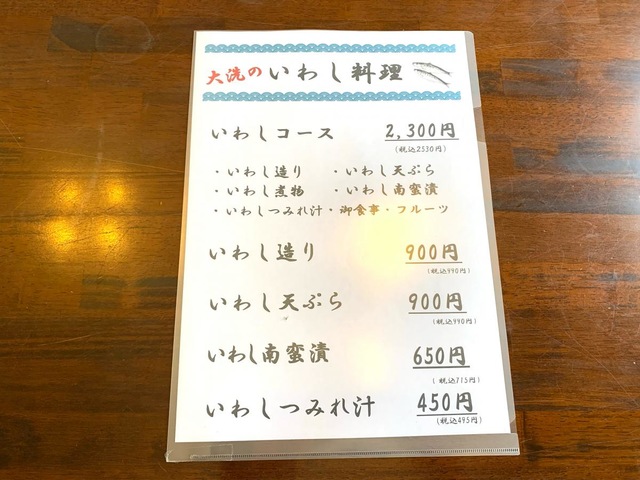 大洗のいわし料理
いわしコース 2,300円
(税込2530円)
・いわし造り ・いわし天ぷら
・いわし煮物 ・いわし南蛮漬
・いわしつみれ汁・御食事・フルーツ
いわし造り 900円
(税込990円)
いわし天ぷら 900円
(税込990円)
いわし南蛮漬 650円
(税込715円)
いわしつみれ汁 450円
(税込495円)